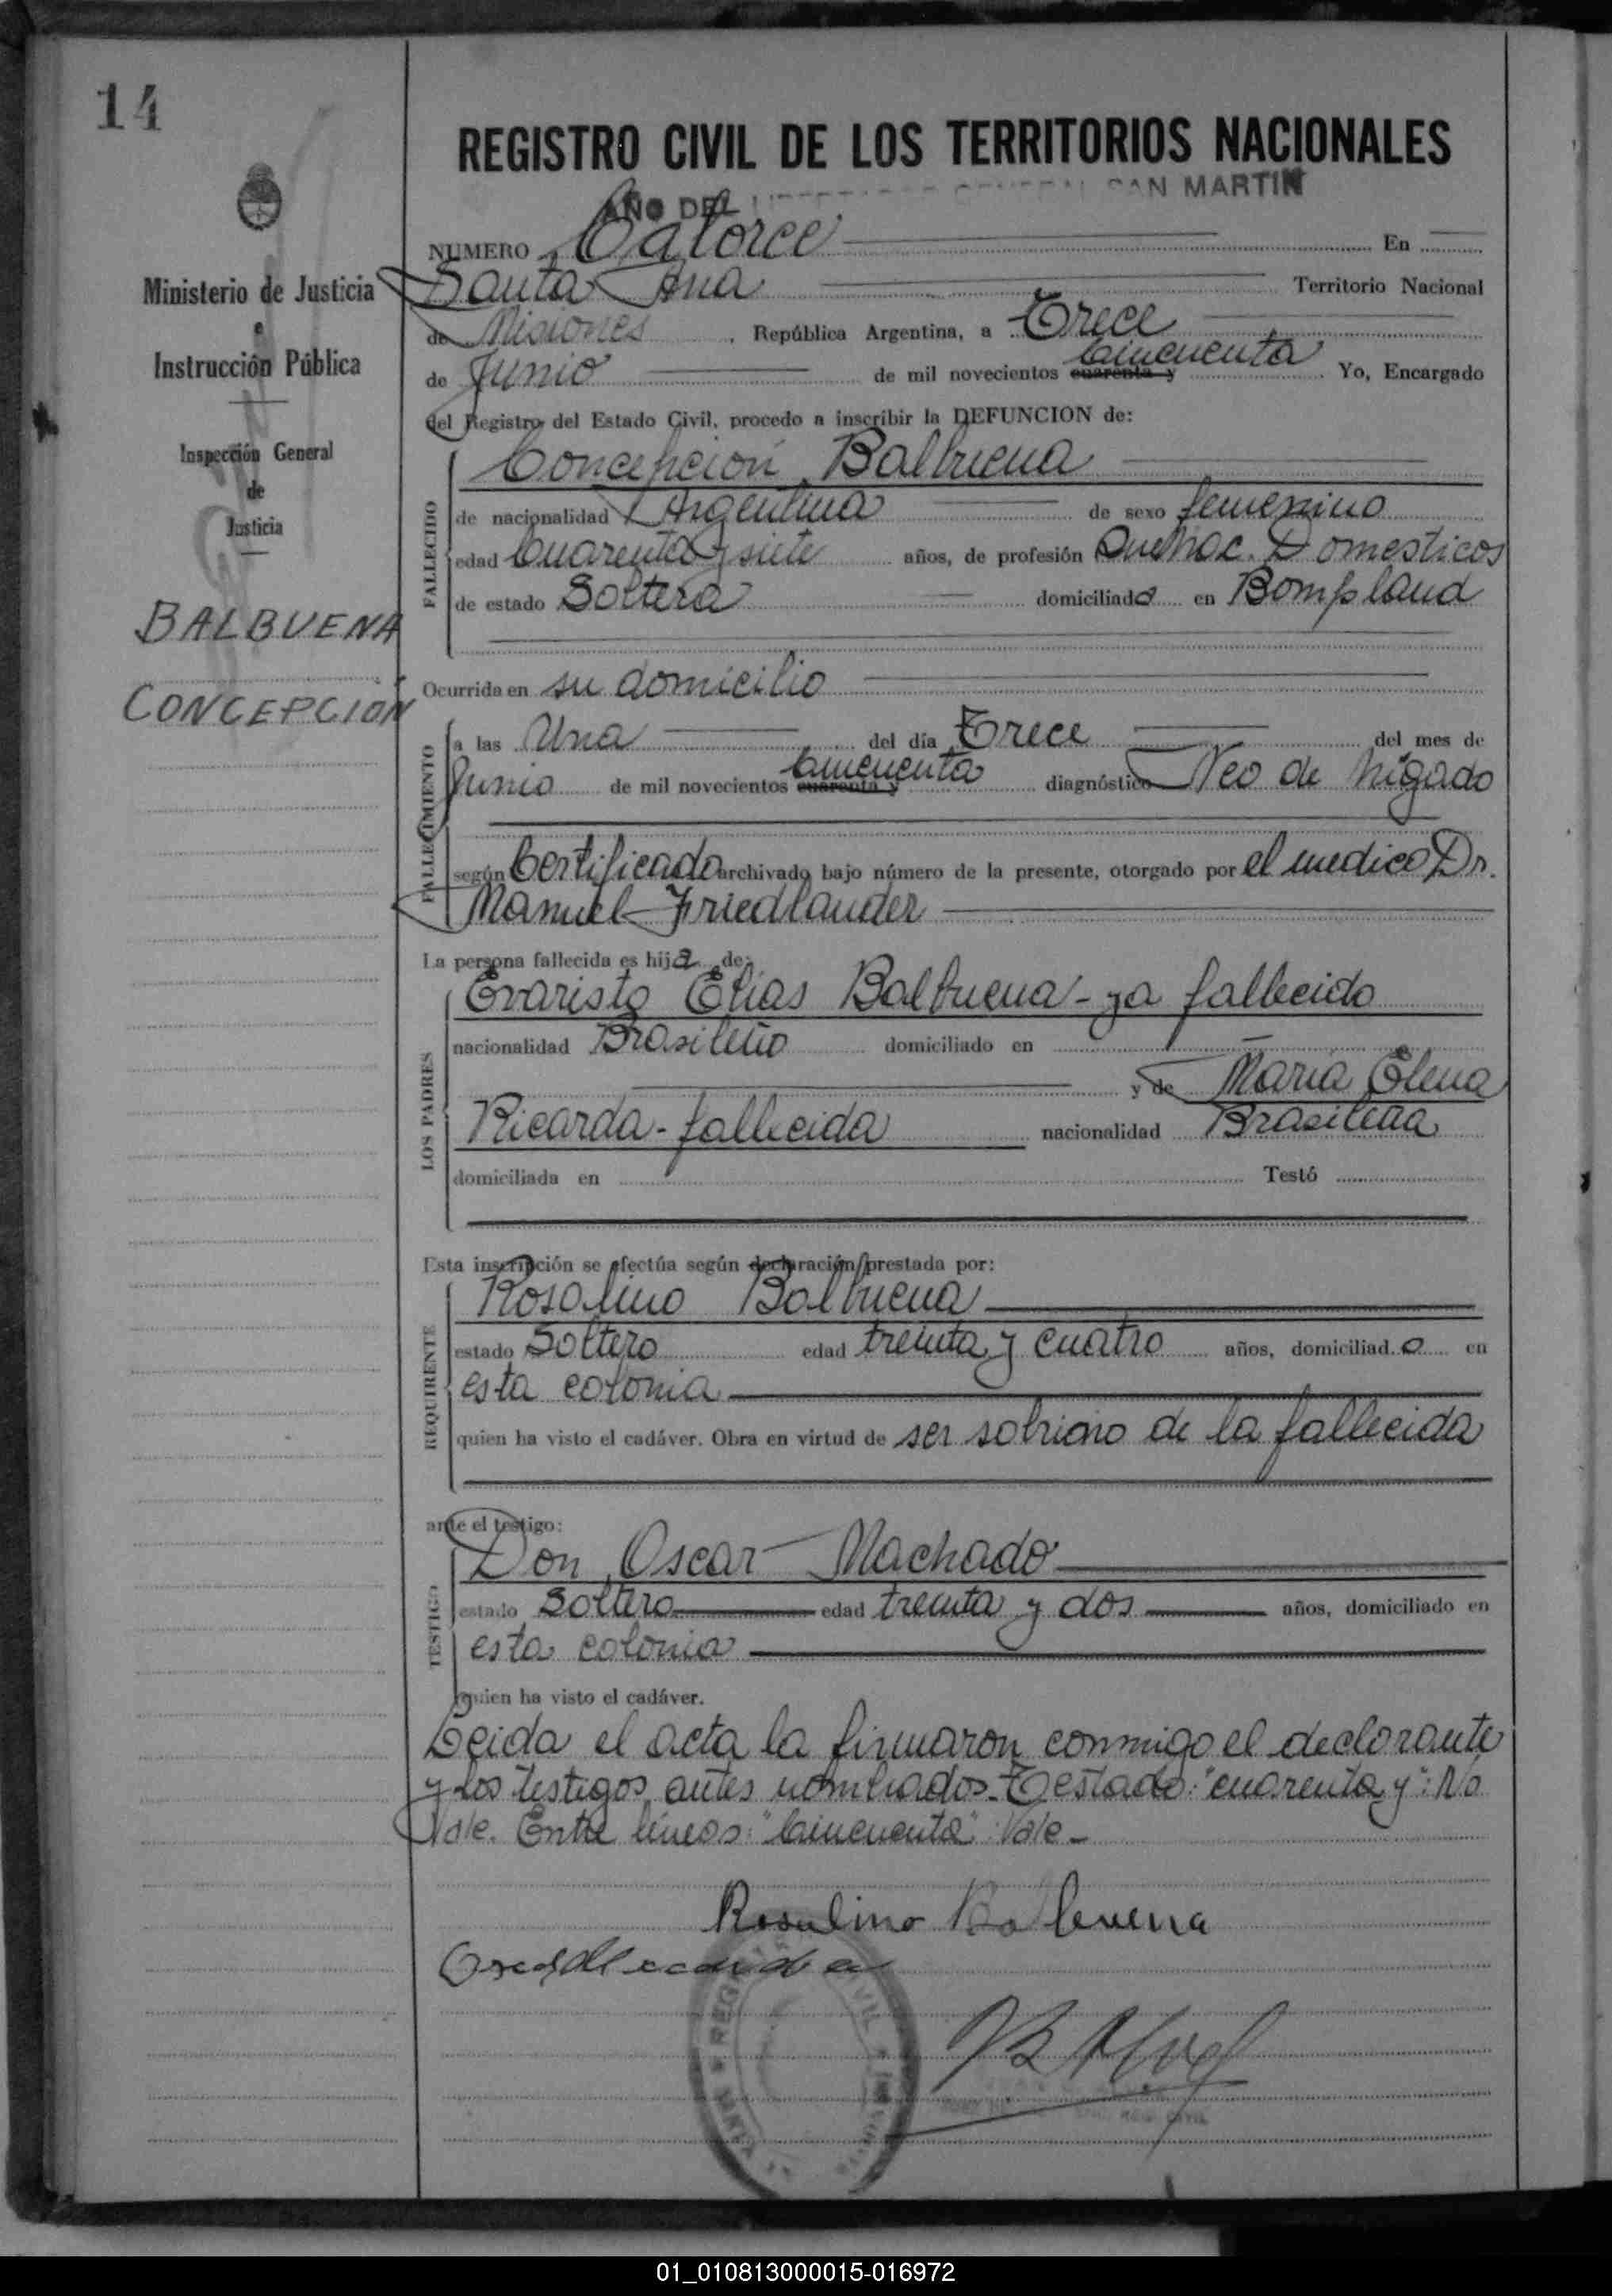 14
REGISTRO CIVIL DE LOS TERRITORIOS NACIONALES
AÑO DEL LIBERTADOR GENERAL SAN MARTIN
NUMERO Catorce En
Santa Ana Territorio Nacional
de Misiones, República Argentina, a Trece
de Junio de mil novecientos cuarenta y Cincuenta Yo, Encargado
del Registro del Estado Civil, procedo a inscribir la DEFUNCION de:
Ministerio de Justicia
e
Instrucción Pública
Inspección General
de
Justicia
BALBUENA
CONCEPCION
FALLECIDO
Concepción Balbuena
de nacionalidad Argentina de sexo femenino
edad Cuarenta y siete años, de profesión Quehac. Domesticos
de estado Soltera domiciliada en Bompland
Ocurrida en su domicilio
FALLECIMIENTO
a las Una del día Trece del mes de
Junio de mil novecientos cuarenta y Cincuenta diagnóstico Neo de hígado
según Certificado archivado bajo número de la presente, otorgado por el medico Dr.
Manuel Friedlander
La persona fallecida es hija de:
LOS PADRES
Evaristo Elias Balbuena - ya fallecido
nacionalidad Brasileño domiciliado en
y de María Elena
Ricarda - fallecida nacionalidad Brasileña
domiciliada en Testó
Esta inscripción se efectúa según declaración prestada por:
REQUIRENTE
Rosalino Balbuena
estado Soltero edad treinta y cuatro años, domiciliado en
esta colonia
quien ha visto el cadáver. Obra en virtud de ser sobrino de la fallecida
ante el testigo:
TESTIGO
Don Oscar Machado
estado Soltero edad treinta y dos años, domiciliado en
esta colonia
quien ha visto el cadáver.
Leida el acta la firmaron conmigo el declarante
y los testigos antes nombrados. Testado: "cuarenta y": No
Vale. Entre líneas: "Cincuenta" Vale -
Rosalino Balbuena
01_010813000015-016972